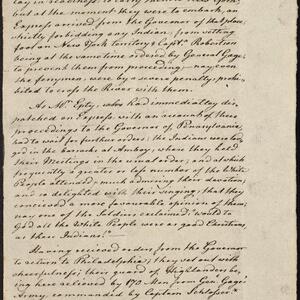 lay in readiness, to carry them to New York;
but at the moment they were to embark an
Express arrived from the Governor of that place,
strictly forbidding any Indian, from setting
foot on New York Territory & Capt. Robertson
being at the same time ordered by General Gage,
to prevent them from proceeding; nay even
the ferrymen, were by a severe penalty, prohi-
bited to cross the River with them.
As Mr. Epty, who had immediately dis-
patched an Express, with an account of these
proceedings to the Governor of Pensylvania,
had to wait for further orders; the Indians were lodg-
ed in the barracks at Amboy, where they held
their Meetings in the usual order; and at which
frequently a greater or less number of the white
People attended, much admiring their devotion,
and so delighted with their singing, that they
conceived a more favourable opinion of them;
nay one of the Soldiers exclaimed: would to
God all the White People were as good Christians,
as these Indians."
Having received orders from the Governor
to return to Philadelphia; they set out with
chearfulness; their guard of Highlanders be-
ing here relieved by 170 Men from Gen. Gage's
Army, commanded by Captain Schlosser.